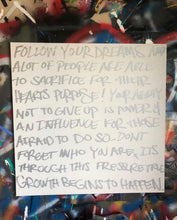 FOLLOW YOUR DREAMS. NOT
ALOT OF PEOPLE ARE ABLE
TO SACRIFICE FOR THEIR
HEARTS PURPOSE! YOUR ABILITY
NOT TO GIVE UP IS POWER &
AN INFLUENCE FOR THOSE
AFRAID TO DO SO. DONT
FORGET WHO YOU ARE, ITS
THROUGH THIS PRESSURE TRUE
GROWTH BEGINS TO HAPPEN